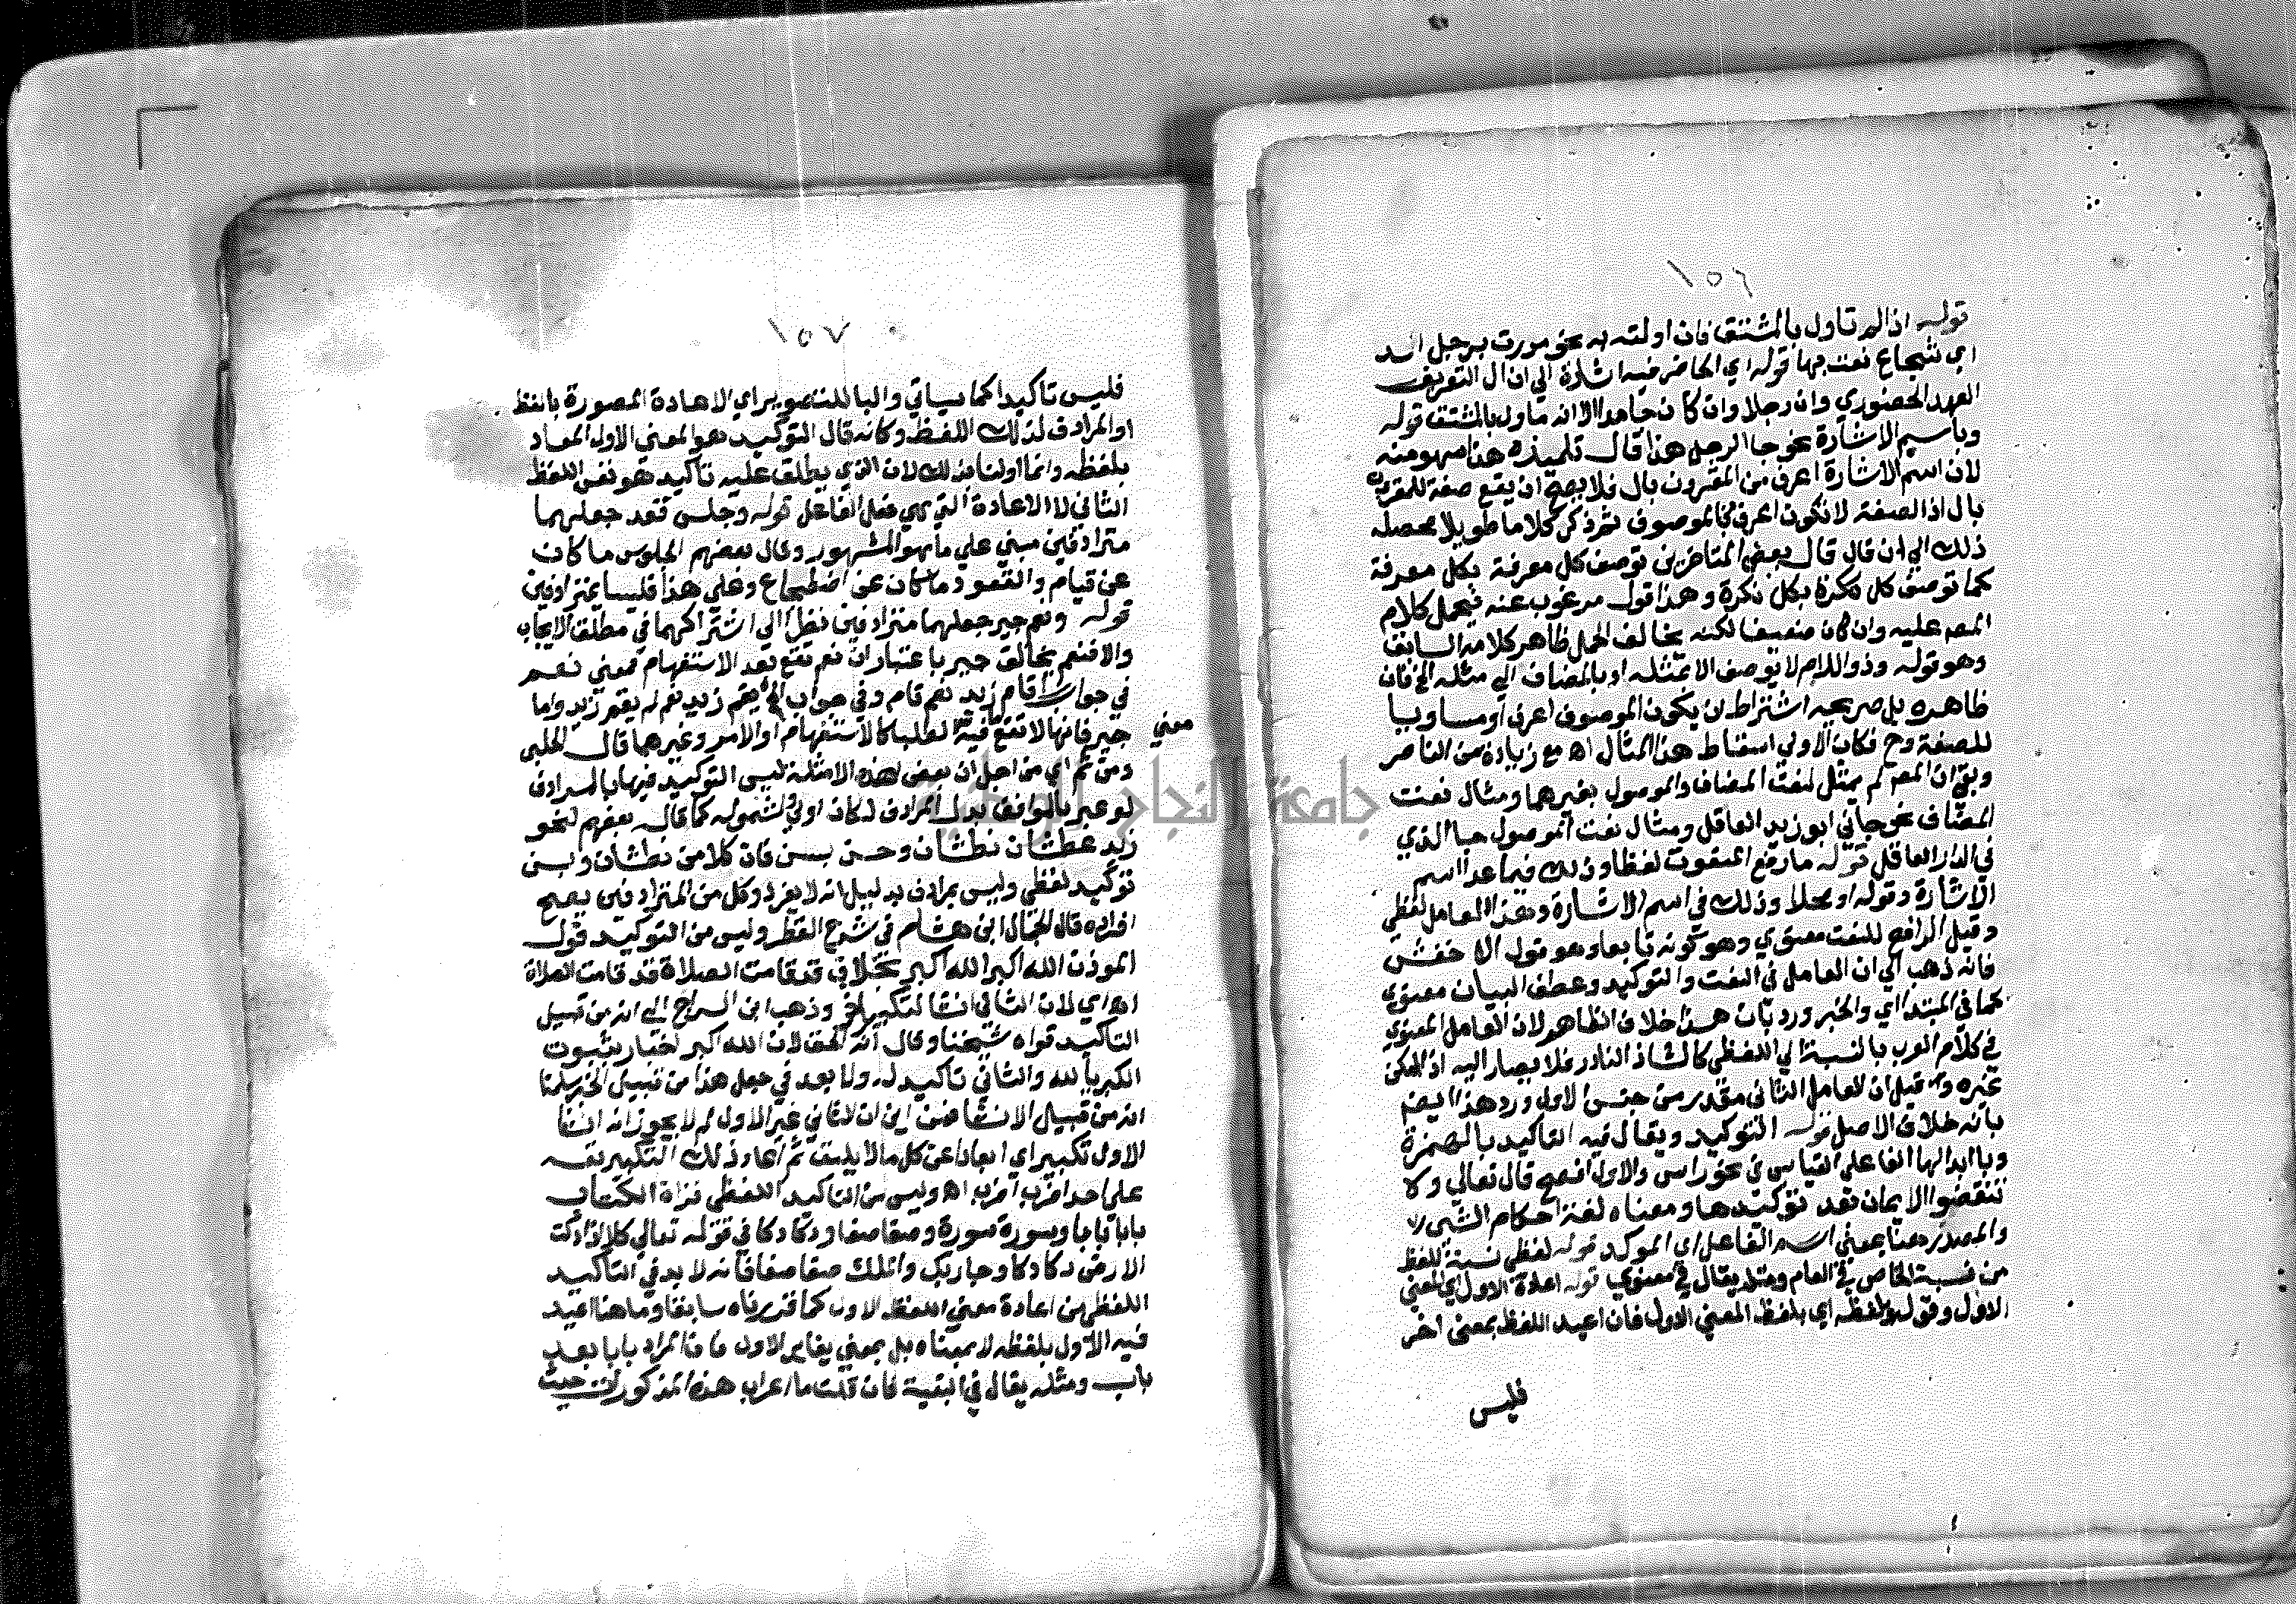 ١٥٦
قوله اذا لم تاول بالمشتق فان اولته به نحو مررت برجل اسد
اي شجاع نعت بها قوله اي الحاضر فيه اشارة الي ان ال التعريف
العهد الحضوري وان رجلا وان كان جامدا الا انه ماول بالمشتق قوله
وباسم الاشارة نحو جا الرجل هذا قال تلميذه هذا سهو منه
لان اسم الاشارة اعرف من المقرون بال فلا يصح ان يقع صفة للمقرون
بال اذ الصفة لا تكون اعرف من الموصوف ثم ذكر كلاما طويلا محصله
ذلك الي ان قال قال بعض المتاخرين توصف كل معرفة بكل معرفة
كما توصف كل نكرة بكل نكرة وهذا قول مرغوب عنه فيحمل كلام
المص عليه وان كان ضعيفا لكنه يخالف الحمل ظاهر كلامه السابق
وهو قوله وذو اللام لا يوصف الا بمثله او بالمضاف الي مثله الخ فان
ظاهره بل صريحه اشتراط ان يكون الموصوف اعرف او مساويا
للصفة وح فكان الاولي اسقاط هذا المثال اه مع زيادة من الناصر
وبقي ان المص لم يمثل لنعت المضاف والموصول بغيرهما ومثال نعت
المضاف نحو جاني ابو زيد العاقل ومثال نعت الموصول جا الذي
في الدار العاقل قوله ما رفع المنعوت لفظا وذلك فيما عدا اسم
الاشارة وقوله او محلا وذلك في اسم الاشارة وهذا العامل لفظي
وقيل الرافع للنعت معنوي وهو كونه تابعا وهو قول الاخفش
فانه ذهب الي ان العامل في النعت والتوكيد وعطف البيان معنوي
كما في المبتدا اي والخبر ورد بان هذا خلاف الظاهر لان العامل المعنوي
في كلام العرب بالنسبة الي اللفظي كالشاذ النادر فلا يصار اليه اذا امكن
غيره وقيل ان العامل الثاني مقدر من جنس الاول ورد هذا ايضم
بانه خلاف الاصل قوله التوكيد ويقال فيه التاكيد بالهمزة
وبابدالها الفا علي القياس في نحو راس والاول افصح قال تعالي ولا
تنقضوا الايمان بعد توكيدها ومعناه لغة احكام الشي
والمصدر هنا بمعني اسم الفاعل اي الموكد قوله لفظي نسبة للفظ
من نسبة الخاص الي العام ومثله يقال في معنوي قوله اعادة الاول اي المعني
الاول وقوله بلفظه اي بلفظ المعني الاول فان اعيد اللفظ بمعني اخر
فليس
١٥٧
فليس تاكيدا كما سياتي والبا للتصوير اي الاعادة المصورة باللفظ
او المرادف لذلك اللفظ وكانه قال التوكيد هو المعني الاول المعاد
بلفظه وانما اولنا بذلك لان الذي يطلق عليه تاكيد هو نفس اللفظ
الثاني لا الاعادة التي هي فعل الفاعل قوله وجلس قعد جعلهما
مترادفين مبني علي ما هو المشهور وقال بعضهم الجلوس ما كان
عن قيام والقعود ما كان عن اضطجاع وعلي هذا فليسا بمترادفين
قوله ونعم جير جعلهما مترادفين نظرا الي اشتراكهما في مطلق الايجاب
والا فنعم يخالف جير باعتبار ان نعم تقع بعد الاستفهام بمعني نعم
في جواب اقام زيد نعم قام وفي جواب الم يقم زيد نعم لم يقم زيد واما
جير فانها لا تقع فيه الطلب كالاستفهام والامر وغيرهما قال الحلبي
معني
ومن ثم اي من اجل ان بعض هذه الامثلة ليس التوكيد فيها بالمرادف
لو عبر بالموافق بدل المرادف لكان اولي لشموله كما قال بعضهم لنحو
زيد عطشان نطشان وحسن بسن فان كلا من نطشان وبسن
توكيد لفظي وليس بمرادف بدليل انه لا يفرد وكل من المترادفين يصح
افراده قال الجمال ابن هشام في شرح القطر وليس من التوكيد قول
الموذن الله اكبر الله اكبر بخلاف قد قامت الصلاة قد قامت الصلاة
اه اي لان الثاني انشا لتكبير اخر وذهب ابن السراج الي انه من قبيل
التاكيد قواه شيخنا وقال انه الحق لان الله اكبر اخبار بثبوت
الكبريا لله والثاني تاكيد له ولا بعد في جعل هذا من قبيل الخبر سلمنا
انه من قبيل الانشا فمن اين ان الثاني غير الاول لم لا يجوز انه انشا
الاول تكبيرا اي ابعادا عن كل ما لا يليق ثم اعاد ذلك التكبير نفسه
علي حد اضرب اضرب اه وليس من التاكيد اللفظي قراة الكتاب
بابا بابا وسورة سورة وصفا صفا ودكا دكا في قوله تعالي كلا اذا دكت
الارض دكا دكا وجا ربك والملك صفا صفا فانه لا بد في التاكيد
اللفظي من اعادة معني اللفظ الاول كما قدرناه سابقا وما هنا اعيد
فيه الاول بلفظه لا بمعناه بل بمعني يغاير الاول فان المراد بابا بعد
باب ومثله يقال في البقية فان قلت ما اعراب هذه المذكورات حيث